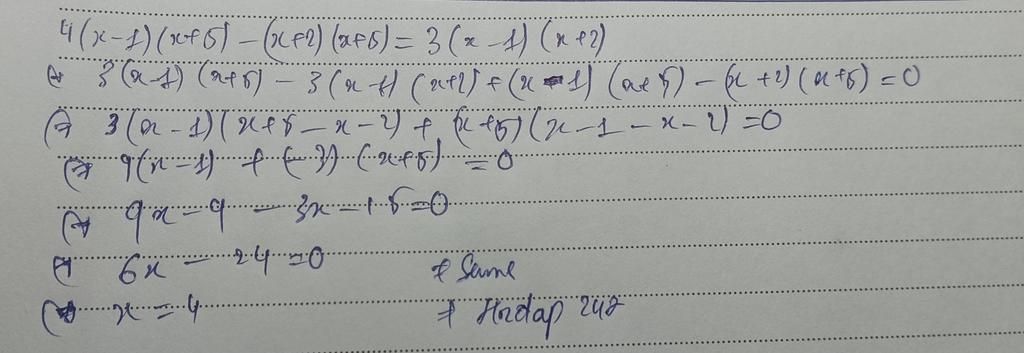 4(x-1)(x+5) - (x+2)(x+5) = 3(x-1)(x+2)
⇔ 3(x-1)(x+5) - 3(x-1)(x+2) + (x-1)(x+5) - (x+2)(x+5) = 0
⇔ 3(x-1)(x+5-x-2) + (x+5)(x-1-x-2) = 0
⇔ 9(x-1) + (-3)(x+5) = 0
⇔ 9x - 9 - 3x - 15 = 0
⇔ 6x - 24 = 0 # Same
⇔ x = 4 # Hoidap 247